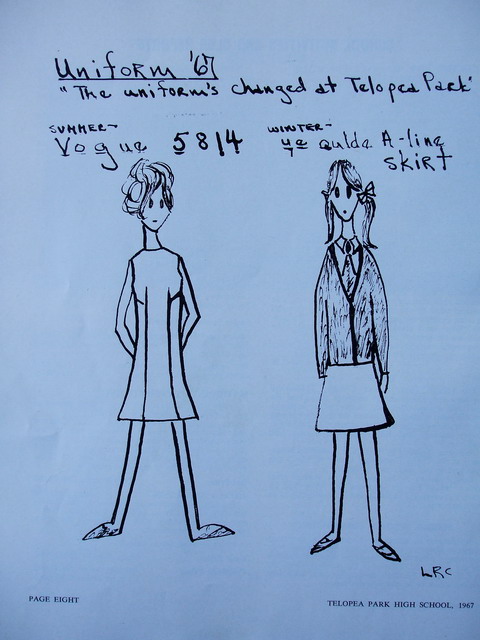 Uniform '67
"The uniform's changed at Telopea Park"
SUMMER- WINTER-
Vogue 5814 ye oulde A-line
SKIRT
LRC
PAGE EIGHT TELOPEA PARK HIGH SCHOOL, 1967